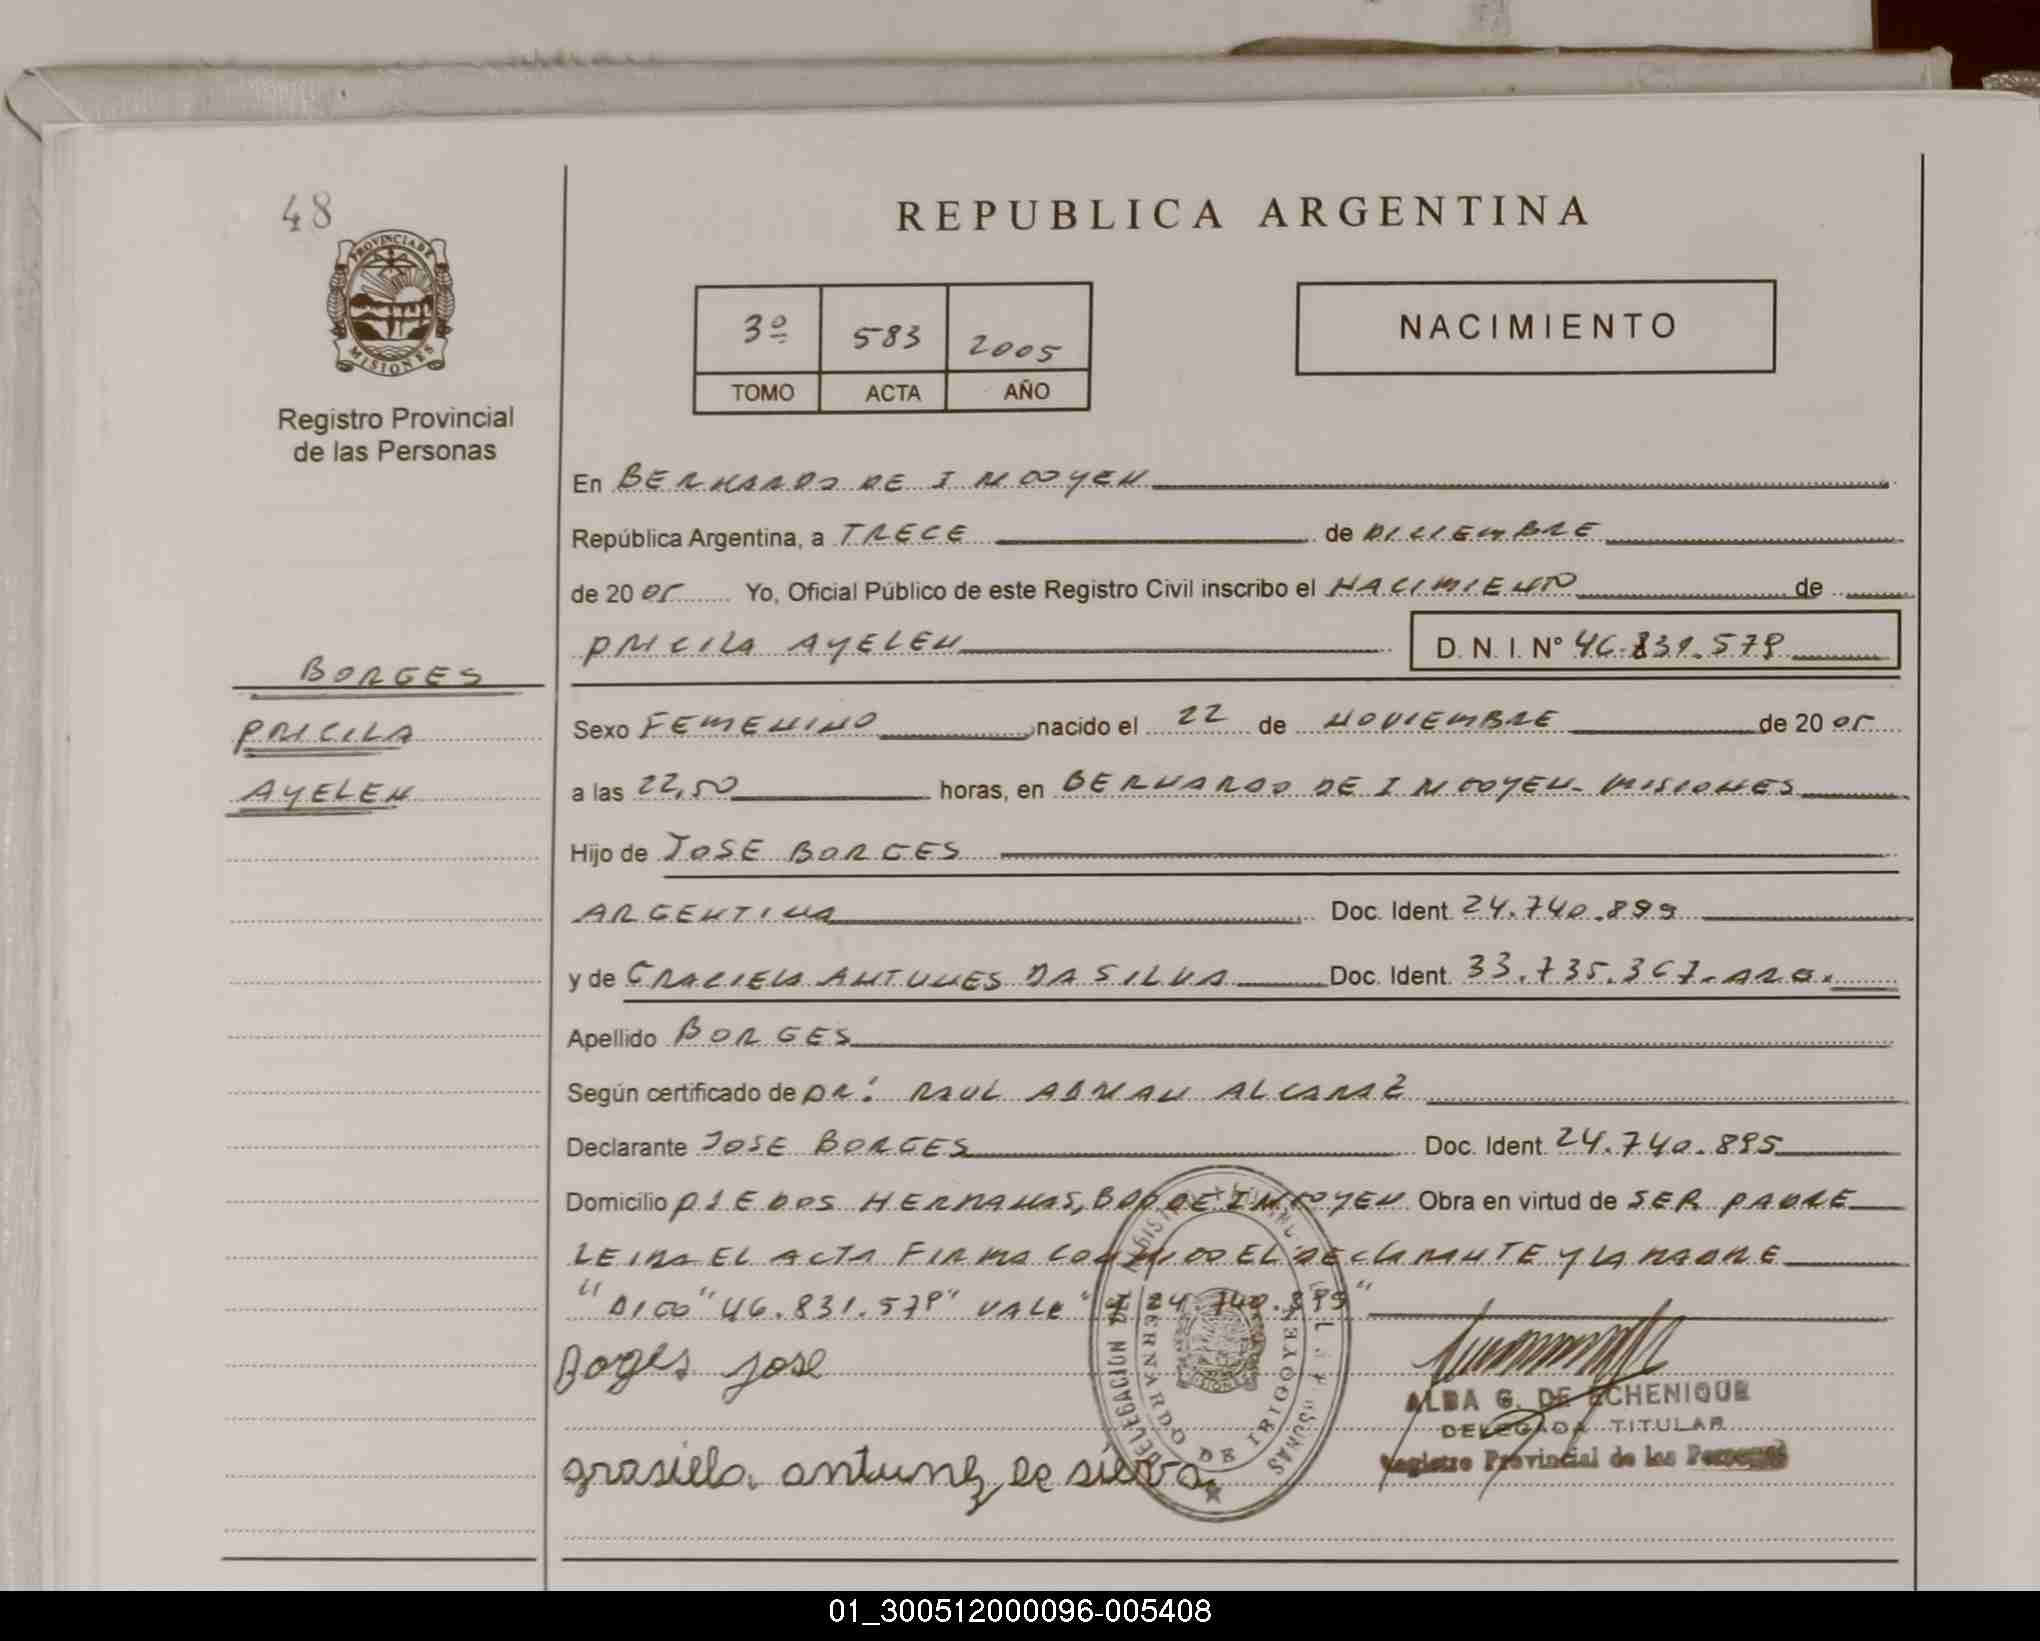 48
REPUBLICA ARGENTINA
PROVINCIA DE
MISIONES
Registro Provincial
de las Personas
3º 583 2005
TOMO ACTA AÑO
NACIMIENTO
En BERNARDO DE IRIGOYEN
República Argentina, a TRECE de DICIEMBRE
de 2005 Yo, Oficial Público de este Registro Civil inscribo el NACIMIENTO de
PRICILA AYELEN D. N. I. Nº 46.831.579
BORGES
PRICILA
AYELEN
Sexo FEMENINO nacido el 22 de NOVIEMBRE de 2005
a las 22,50 horas, en BERNARDO DE IRIGOYEN - MISIONES
Hijo de JOSE BORGES
ARGENTINA Doc. Ident. 24.740.899
y de GRACIELA ANTUNES DA SILVA Doc. Ident. 33.735.367 - ARG.
Apellido BORGES
Según certificado de DR: RAUL ADRIAN ALCARAZ
Declarante JOSE BORGES Doc. Ident. 24.740.895
Domicilio PJE DOS HERMANAS, BDO DE IRIGOYEN Obra en virtud de SER PADRE
LEIDA EL ACTA FIRMA CONMIGO EL DECLARANTE Y LA MADRE
"DIGO" 46.831.579" VALE" Y 24.740.899"
Borges jose
grasiela antunez de silva
DELEGACION DEL REGISTRO PROVINCIAL DE LAS PERSONAS
BERNARDO DE IRIGOYEN
ALBA G. DE ECHENIQUE
DELEGADA TITULAR
Registro Provincial de las Personas
01_300512000096-005408